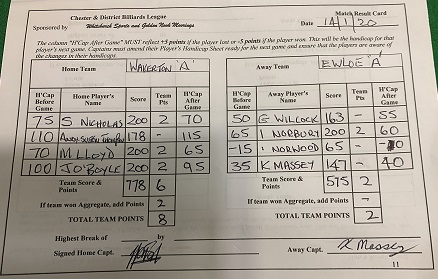 Chester & District Billiards League
Match Result Card
Sponsored by Whitchurch Sports and Golden Nook Moorings
Date 14/1/20
The column "H'Cap After Game" MUST reflect +5 points if the player lost or -5 points if the player won. This will be the handicap for that
player's next game. Captains must amend their Player's Handicap Sheet ready for the next game and ensure that the players are aware of
the changes in their handicaps.
Home Team WAVERTON 'A'
Away Team EWLOE 'A'
H'Cap Before Game Home Player's Name Score Team Pts H'Cap After Game
75 S NICHOLAS 200 2 70
110 178 - 115
70 M LLOYD 200 2 65
100 J O'BOYLE 200 2 95
Team Score & Points 778 6
If team won Aggregate, add Points 2
TOTAL TEAM POINTS 8
H'Cap Before Game Away Player's Name Score Team Pts H'Cap After Game
50 G WILCOCK 163 - 55
65 I NORBURY 200 2 60
-15 I NORWOOD 65 - 10
35 K MASSEY 147 - 40
Team Score & Points 575 2
If team won Aggregate, add Points -
TOTAL TEAM POINTS 2
Highest Break of by
Signed Home Capt.
Away Capt. K Massey
11